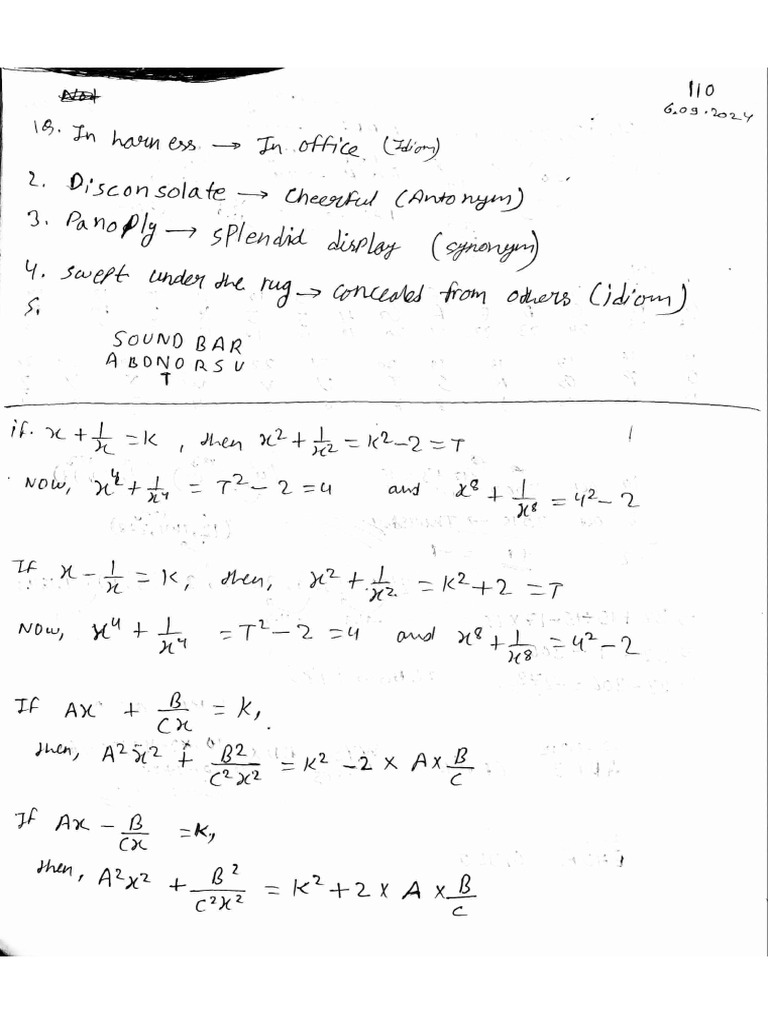 110
6.09.2024
1. In harness → In office (Idiom)
2. Disconsolate → Cheerful (Antonym)
3. Panoply → splendid display (synonym)
4. swept under the rug → concealed from others (idiom)
5.
SOUND BAR
A BDNORSU
T
if x + 1/x = K, then x² + 1/x² = K² - 2 = T
NOW, x⁴ + 1/x⁴ = T² - 2 = 4 and x⁸ + 1/x⁸ = 4² - 2
If x - 1/x = K, then, x² + 1/x² = K² + 2 = T
NOW, x⁴ + 1/x⁴ = T² - 2 = 4 and x⁸ + 1/x⁸ = 4² - 2
If Ax + B/Cx = K,
then, A²x² + B²/C²x² = K² - 2 × A × B/C
If Ax - B/Cx = K,
then, A²x² + B²/C²x² = K² + 2 × A × B/C